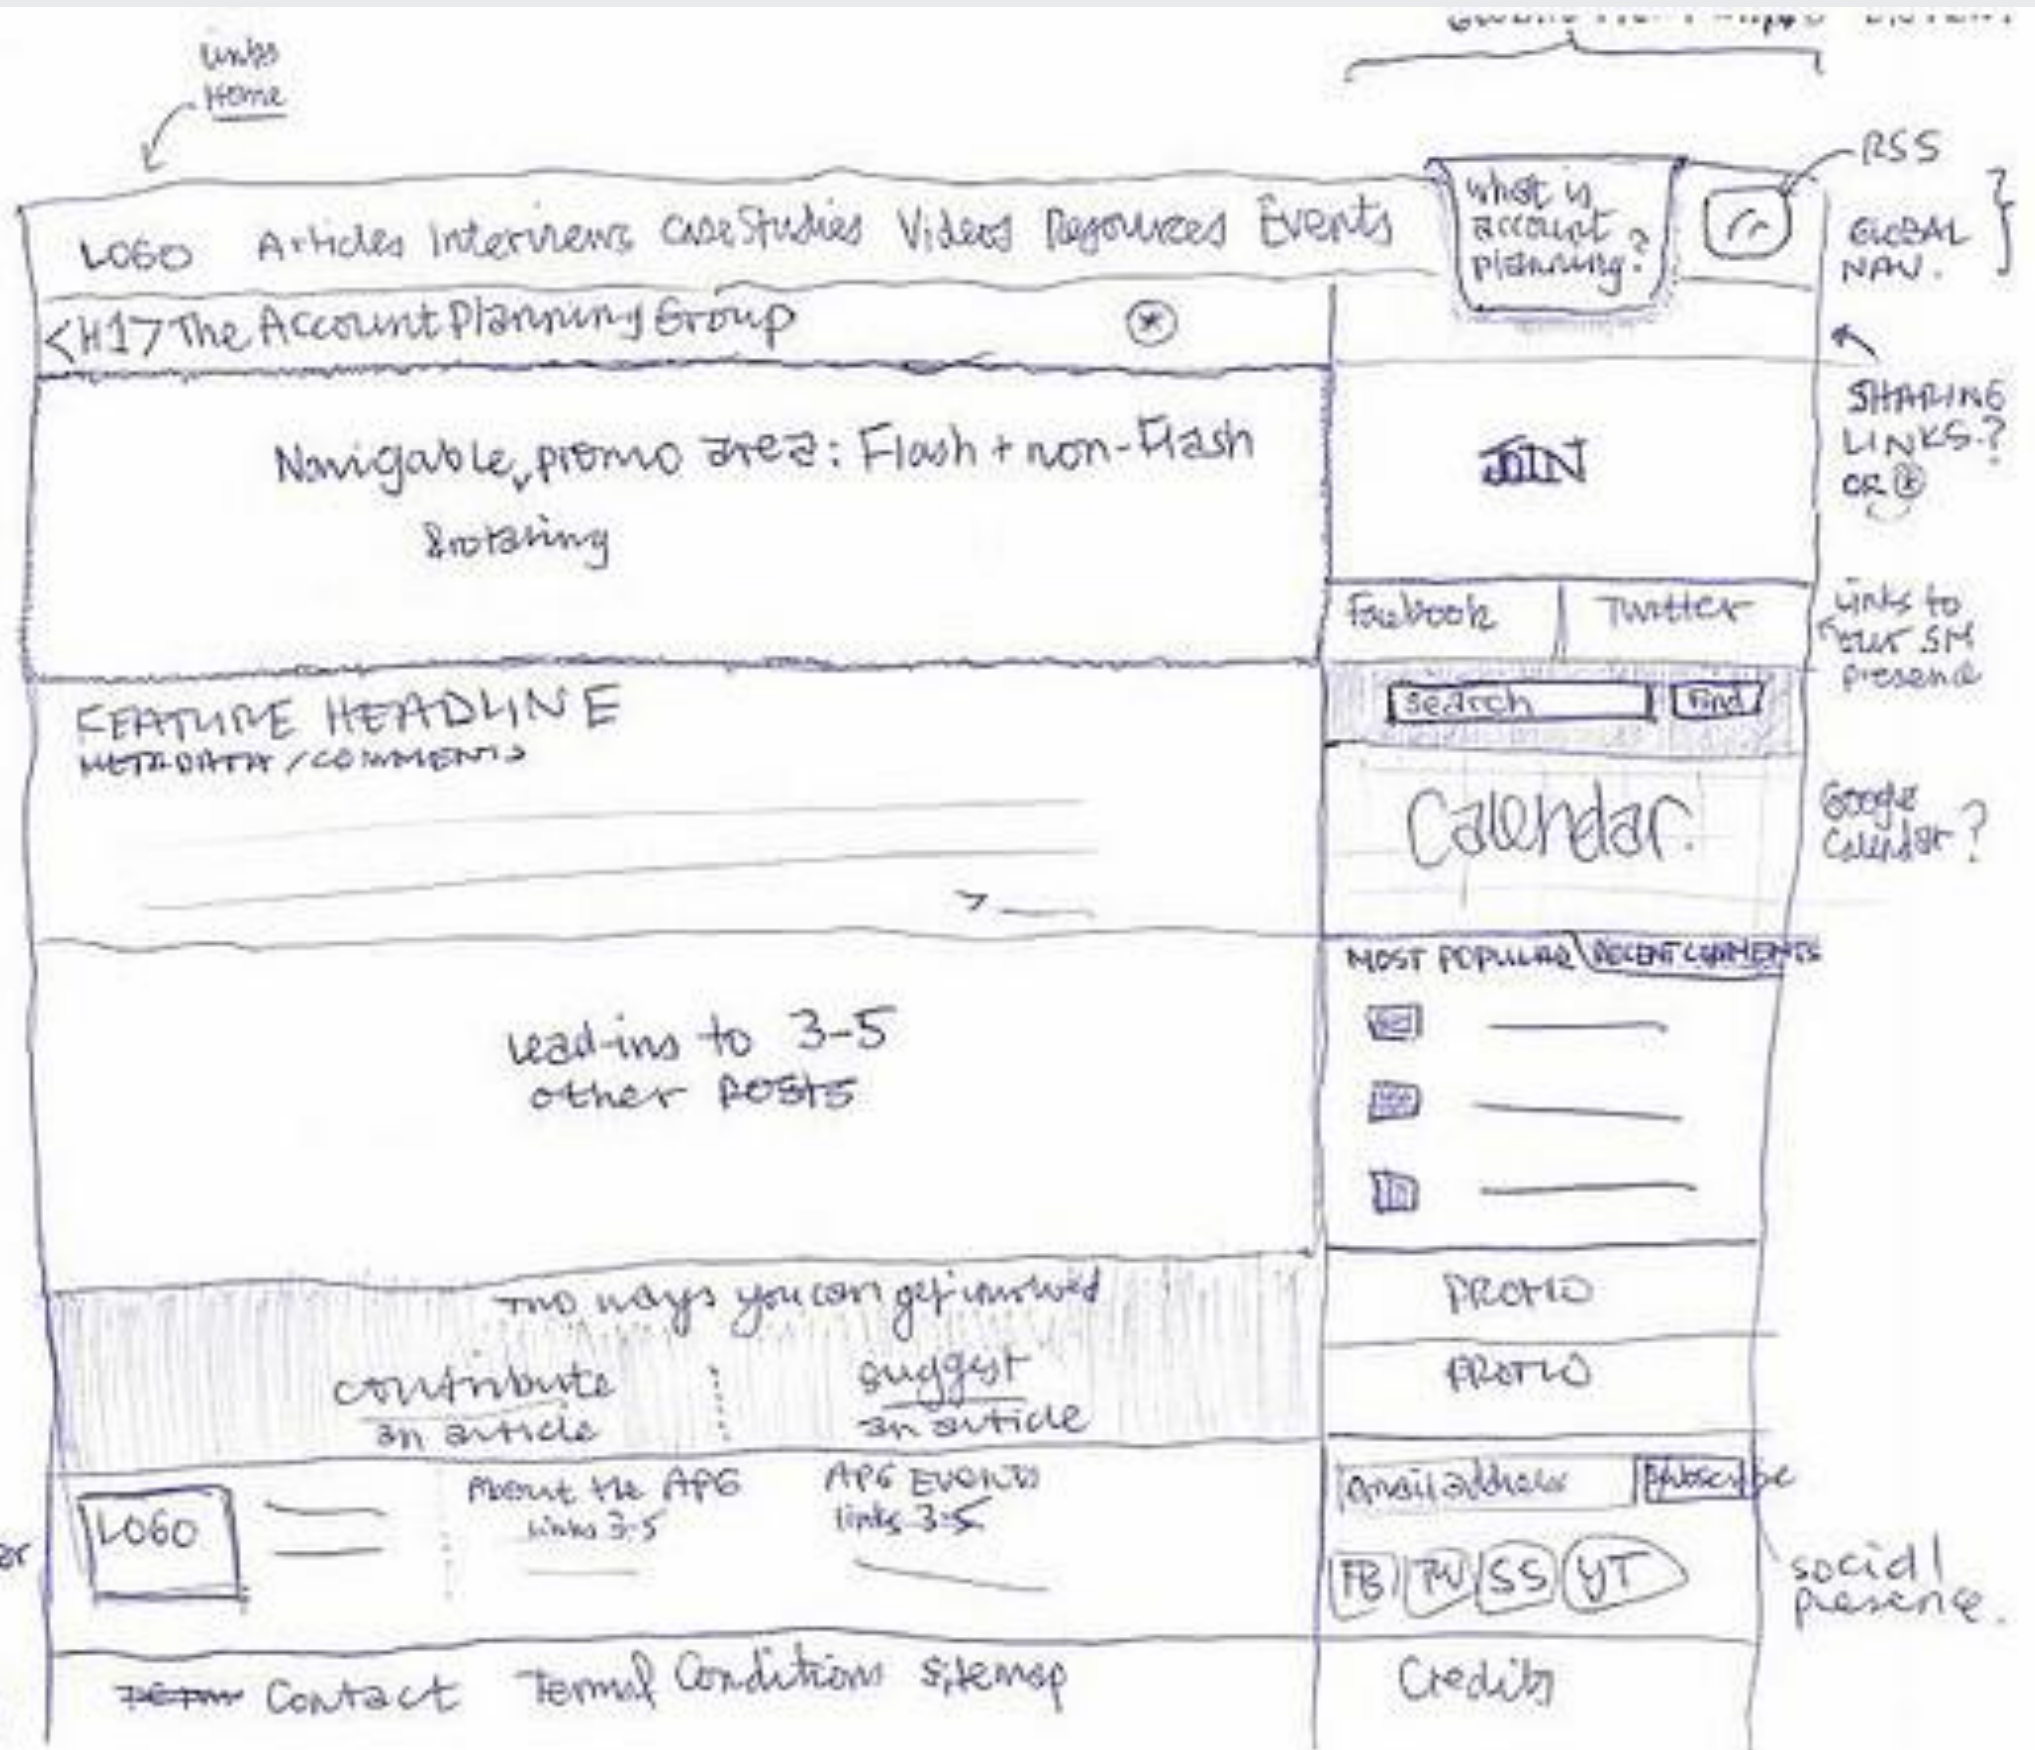 Links
Home
RSS
LOGO Articles Interviews Case Studies Videos Resources Events
what is
account
planning?
GLOBAL
NAV.
<H1> The Account Planning Group
*
SHARING
LINKS?
OR *
Navigable, promo area: Flash + non-Flash
& rotating
JOIN
Facebook
Twitter
Links to
our SM
presence
Search
Find
FEATURE HEADLINE
METADATA / COMMENTS
Calendar.
Google
Calendar?
>
MOST POPULAR \ RECENT COMMENTS
Lead-ins to 3-5
other posts
Two ways you can get involved
contribute
an article
suggest
an article
PROMO
PROMO
LOGO
About the APG
links 3-5
APG EVENTS
links 3-5
email address
Subscribe
FB TW SS YT
social
presence.
Contact
Conditions Sitemap
Credits